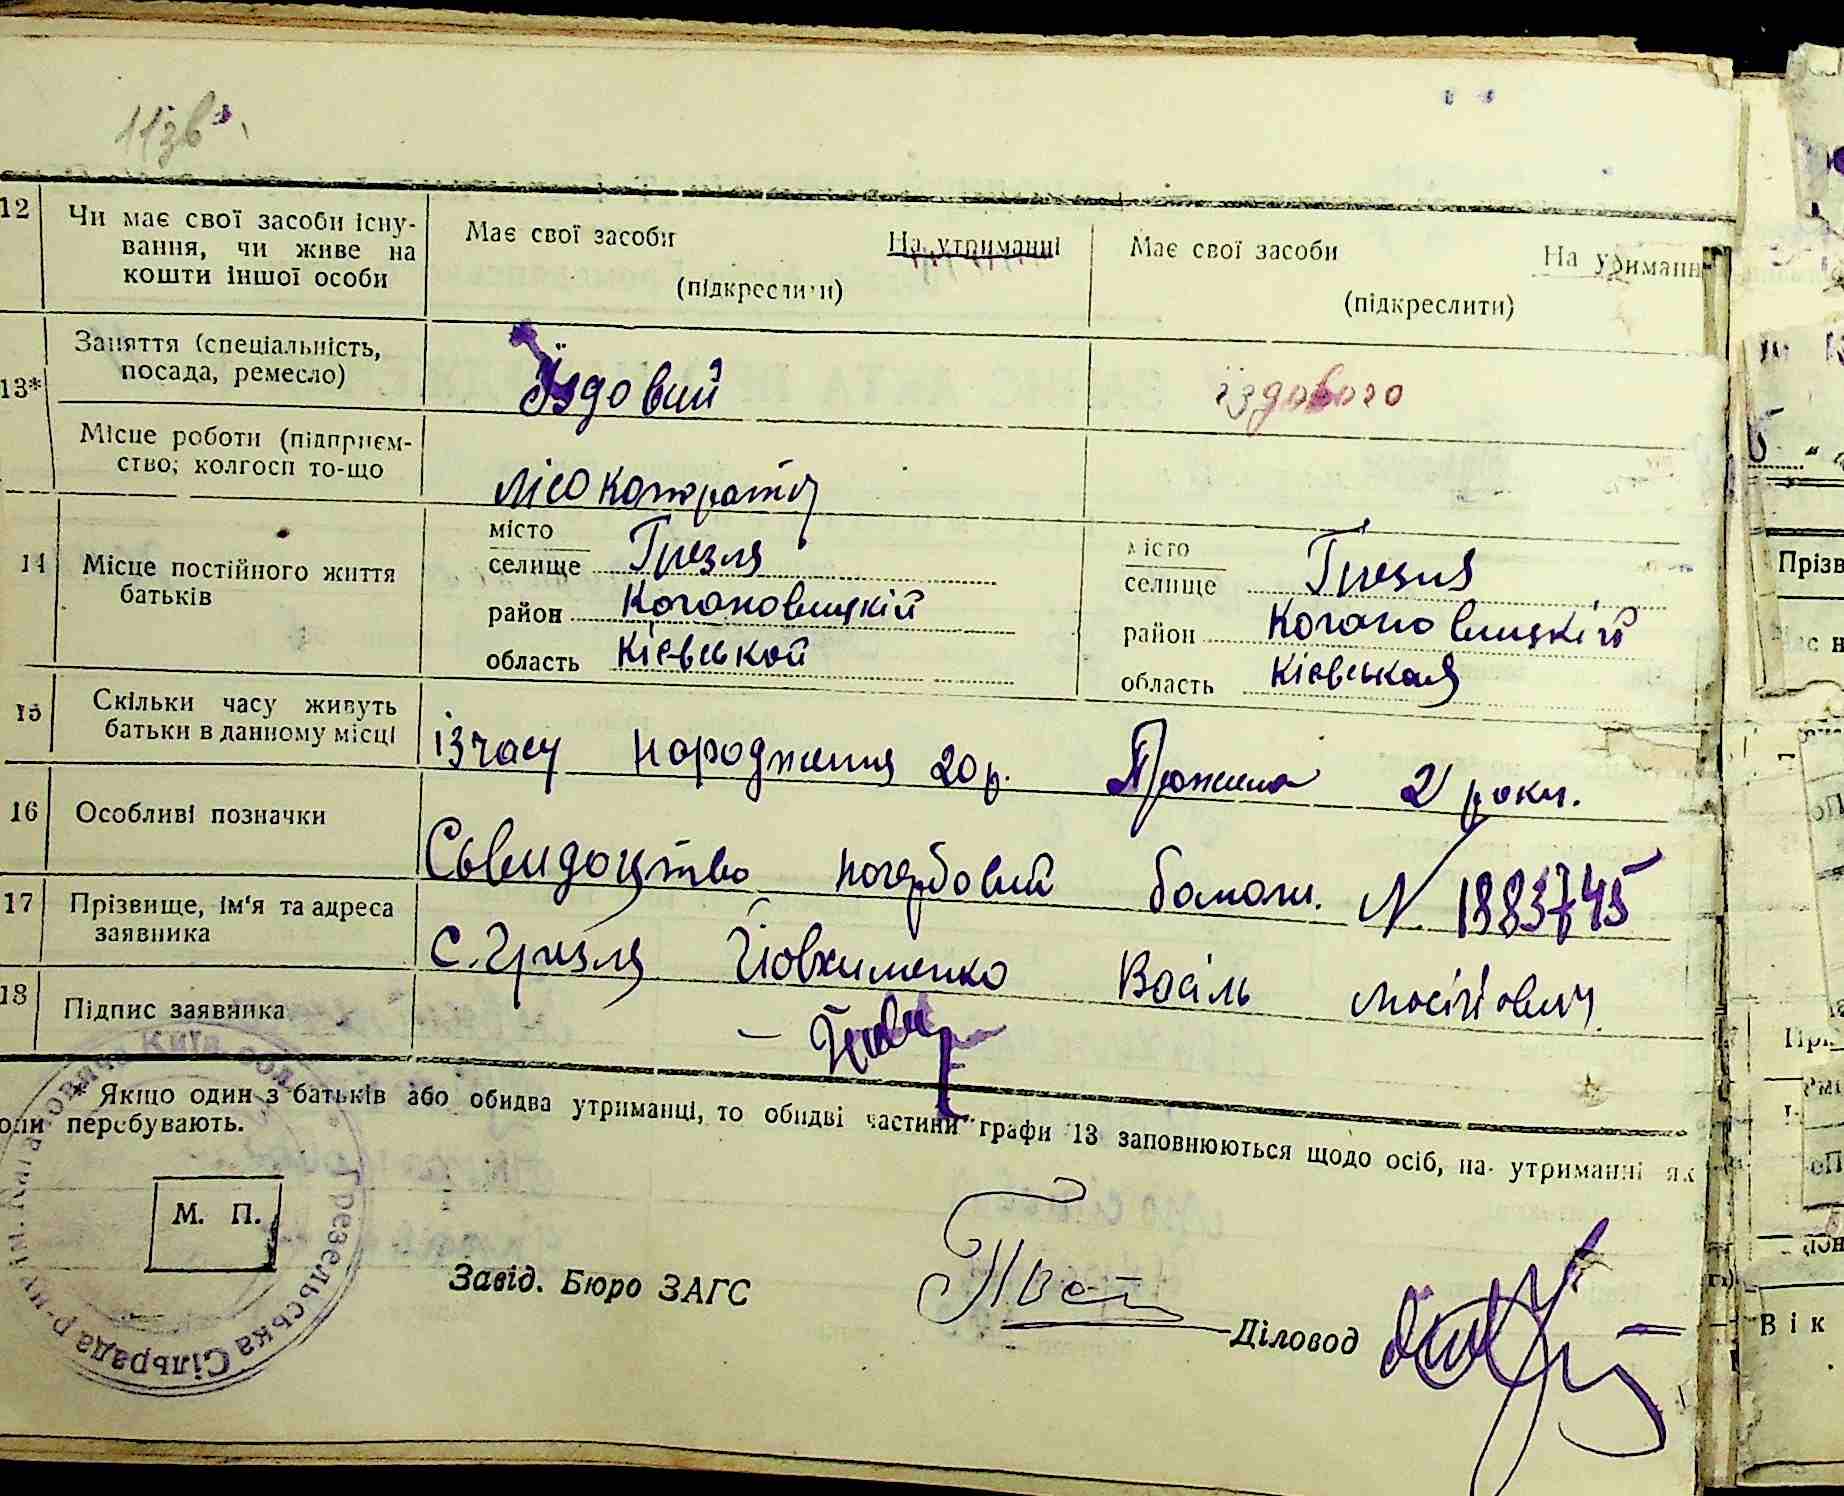 11зв
12 Чи має свої засоби існу-
вання, чи живе на
кошти іншої особи
Має свої засоби На утриманні
(підкреслити)
Має свої засоби На утриманн
(підкреслити)
13* Заняття (спеціальність,
посада, ремесло)
Їздовий
їздового
Місце роботи (підприєм-
ство; колгосп то-що
14 Місце постійного життя
батьків
місто
селище Грезля
район Когановицкій
область Кієвськой
місто
селище Грезля
район Когановицкій
область Кієвськая
15 Скільки часу живуть
батьки в данному місці
із часу народження 20 р. Прожили 2 роки.
16 Особливі позначки
Сьвидоцтво N 1883745
17 Прізвище, ім'я та адреса
заявника
С. Грезля Йовхименко Васіль мосійович
18 Підпис заявника
* Якщо один з батьків або обидва утриманці, то обидві частини графи 13 заповнюються щодо осіб, на утриманні як
они перебувають.
М. П.
Грезельська Сільрада р-ну ім. Кагановича Київ. обл.
Завід. Бюро ЗАГС
Діловод
Прізв
Вік